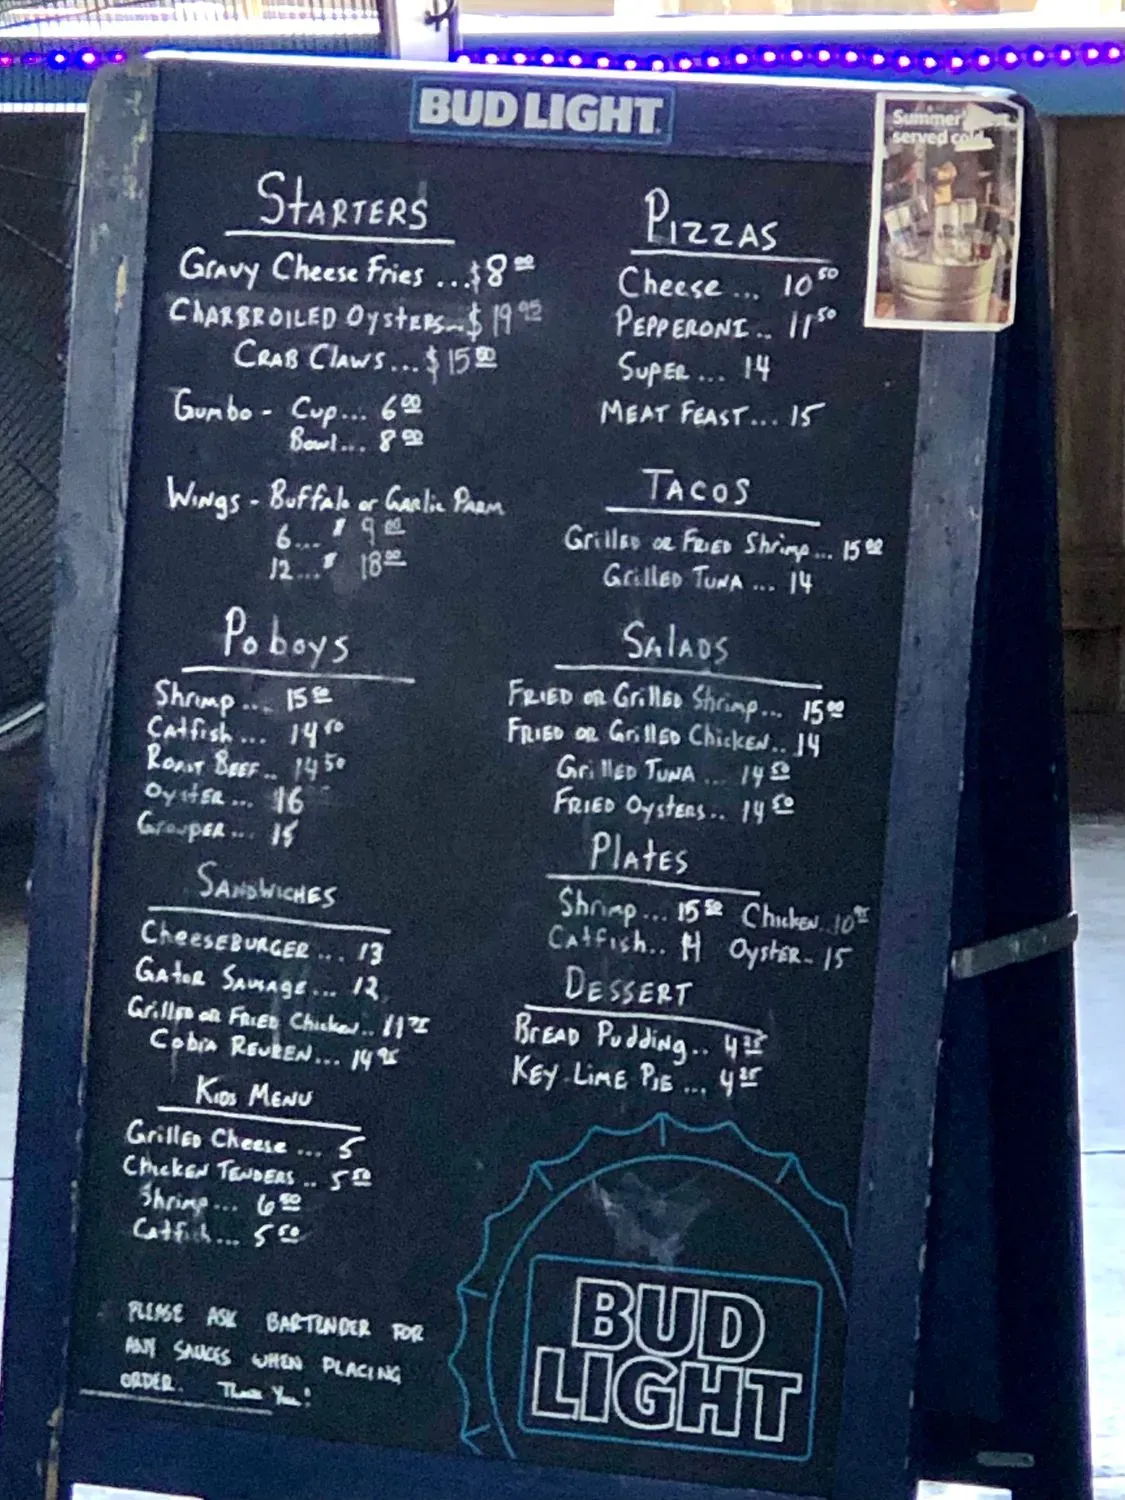 BUD LIGHT
Summer's
served cold.
STARTERS
Gravy Cheese Fries ...$8.00
CHARBROILED OysteRs...$19.95
CRAB CLAWS...$15.00
Gumbo - Cup... 6.00
Bowl... 8.00
WINGS - Buffalo or Garlic PARM
6...$ 9.00
12...$ 18.00
Po boys
Shrimp.... 15.50
Catfish... 14.50
ROAST BEEF.. 14.50
OysTER... 16
Grouper... 15
SANDWICHES
CheeseBURGER... 13
GATOR SAUSAGE... 12
Grilled OR FRIED Chicken.. 11.75
CobiA REUBEN... 14.95
KIDS MENU
Grilled Cheese ... 5
Chicken TENDERS .. 5.50
Shrimp... 6.50
Catfish... 5.50
PLEASE ASK BARTENDER FOR
ANY SAUCES WHEN PLACING
ORDER. Thank You!
PIZZAS
Cheese ... 10.50
PEPPERONI... 11.50
SUPER... 14
MEAT FEAST... 15
TACOS
Grilled OR FRIED Shrimp... 15.00
Grilled TUNA ... 14
SALADS
FRIED OR Grilled Shrimp... 15.00
FRIED OR Grilled Chicken.. 14
Grilled TUNA ... 14.50
FRIED Oysters.. 14.50
PlATES
Shrimp... 15.50 Chicken..10.95
Catfish.. 14 Oyster.. 15
DESSERT
BREAD Pudding..
KEY LIME PIE ...
BUD
LIGHT